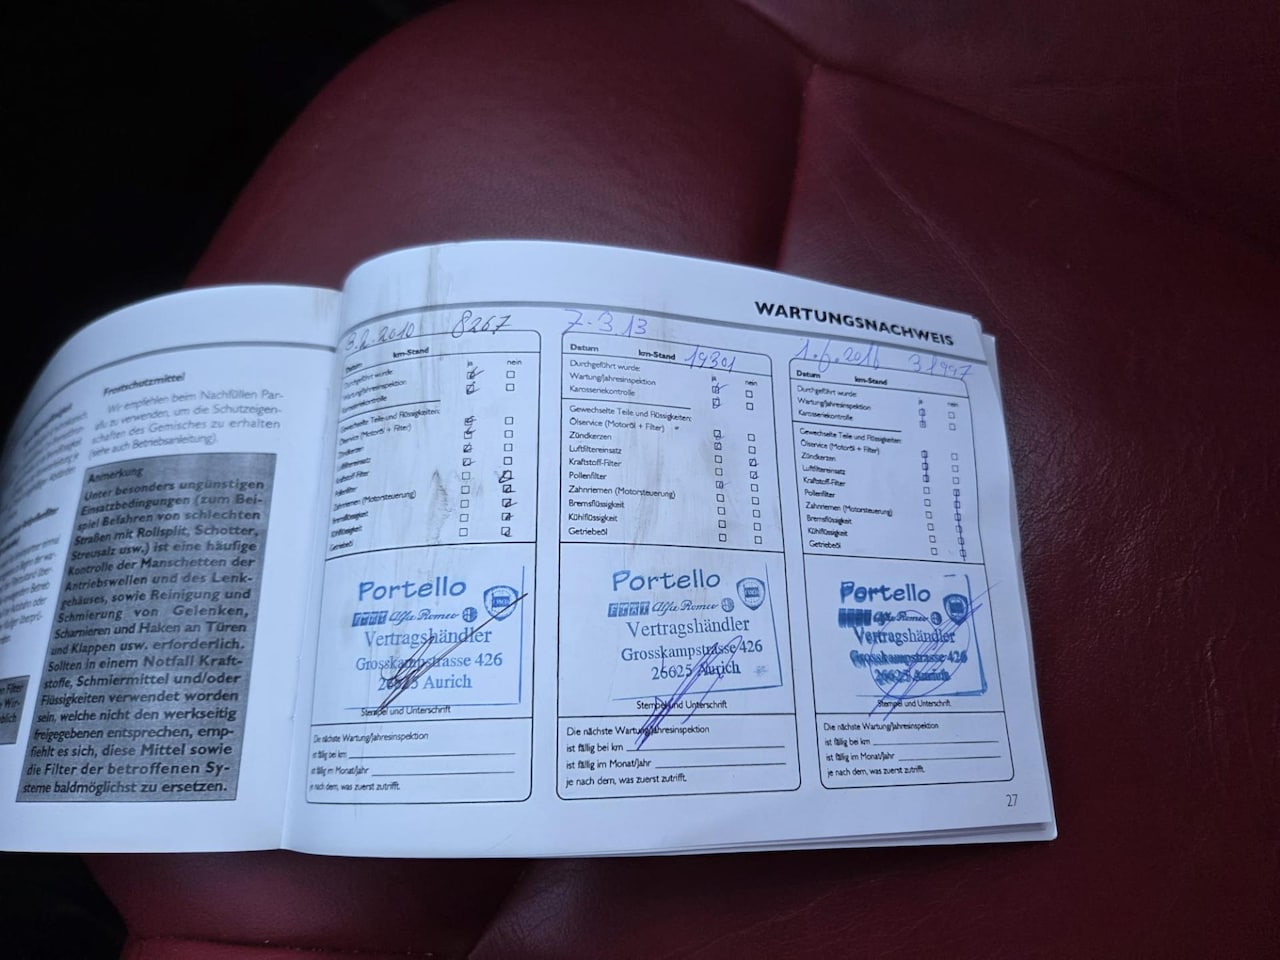 Frostschutzmittel
Wir empfehlen beim Nachfüllen Par-
aflu zu verwenden, um die Schutzeigen-
schaften des Gemisches zu erhalten
(siehe auch Betriebsanleitung).
Anmerkung
Unter besonders ungünstigen
Einsatzbedingungen (zum Bei-
spiel Befahren von schlechten
Straßen mit Rollsplit, Schotter,
Streusalz usw.) ist eine häufige
Kontrolle der Manschetten der
Antriebswellen und des Lenk-
gehäuses, sowie Reinigung und
Schmierung von Gelenken,
Scharnieren und Haken an Türen
und Klappen usw. erforderlich.
Sollten in einem Notfall Kraft-
stoffe, Schmiermittel und/oder
Flüssigkeiten verwendet worden
sein, welche nicht den werkseitig
freigegebenen entsprechen, emp-
fiehlt es sich, diese Mittel sowie
die Filter der betroffenen Sy-
steme baldmöglichst zu ersetzen.
WARTUNGSNACHWEIS
2010 8267
Datum km-Stand
ja nein
Durchgeführt wurde:
Wartung/Jahresinspektion
Karosseriekontrolle
Gewechselte Teile und Flüssigkeiten:
Ölservice (Motoröl + Filter)
Zündkerzen
Luftfiltereinsatz
Kraftstoff-Filter
Pollenfilter
Zahnriemen (Motorsteuerung)
Bremsflüssigkeit
Kühlflüssigkeit
Getriebeöl
Portello
FIAT Alfa Romeo
Vertragshändler
Grosskampstrasse 426
26625 Aurich
Stempel und Unterschrift
Die nächste Wartung/Jahresinspektion
ist fällig bei km
ist fällig im Monat/Jahr
je nach dem, was zuerst zutrifft.
7-3.13
Datum km-Stand 19301
Durchgeführt wurde: ja nein
Wartung/Jahresinspektion
Karosseriekontrolle
Gewechselte Teile und Flüssigkeiten:
Ölservice (Motoröl + Filter)
Zündkerzen
Luftfiltereinsatz
Kraftstoff-Filter
Pollenfilter
Zahnriemen (Motorsteuerung)
Bremsflüssigkeit
Kühlflüssigkeit
Getriebeöl
Portello
FIAT Alfa Romeo
Vertragshändler
Grosskampstrasse 426
26625 Aurich
Stempel und Unterschrift
Die nächste Wartung/Jahresinspektion
ist fällig bei km
ist fällig im Monat/Jahr
je nach dem, was zuerst zutrifft.
1.6.2016 31997
Datum km-Stand
Durchgeführt wurde: ja nein
Wartung/Jahresinspektion
Karosseriekontrolle
Gewechselte Teile und Flüssigkeiten:
Ölservice (Motoröl + Filter)
Zündkerzen
Luftfiltereinsatz
Kraftstoff-Filter
Pollenfilter
Zahnriemen (Motorsteuerung)
Bremsflüssigkeit
Kühlflüssigkeit
Getriebeöl
Portello
Alfa Romeo
Vertragshändler
Grosskampstrasse 426
26625 Aurich
Stempel und Unterschrift
Die nächste Wartung/Jahresinspektion
ist fällig bei km
ist fällig im Monat/Jahr
je nach dem, was zuerst zutrifft.
27